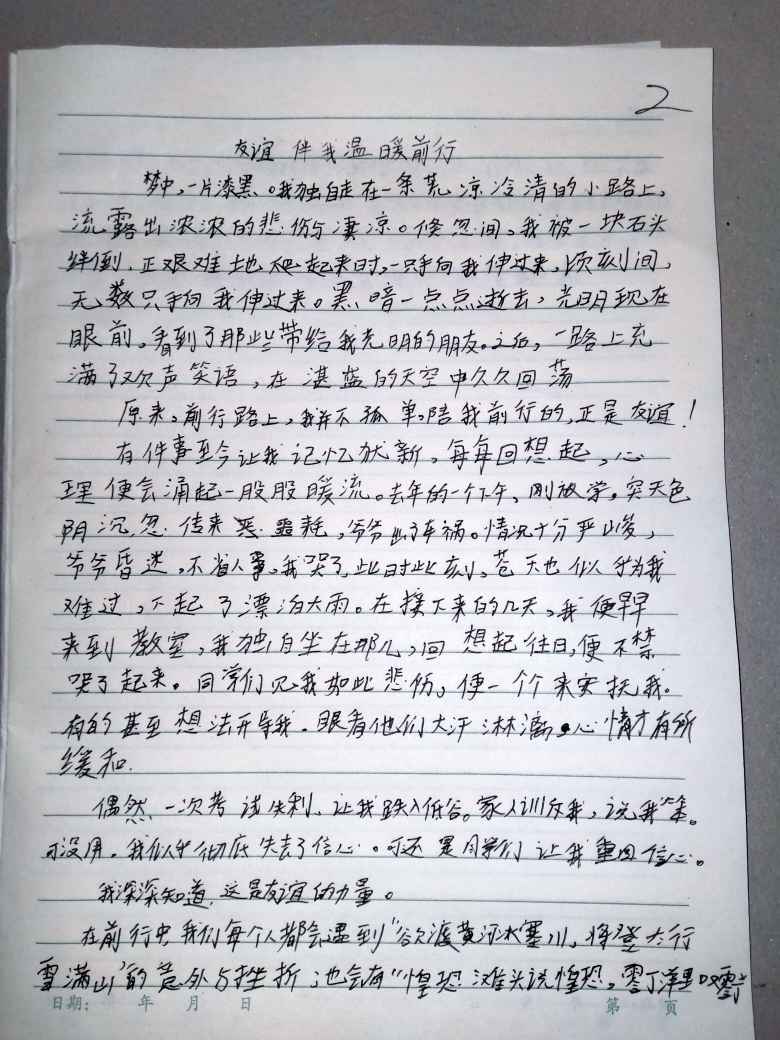 2
友谊 伴我温暖前行
梦中，一片漆黑。我独自走在一条荒凉冷清的小路上，
流露出浓浓的悲伤与凄凉。倏忽间，我被一块石头
绊倒，正艰难地爬起来时，一只手向我伸过来，顷刻间，
无数只手向我伸过来。黑暗一点点逝去，光明现在
眼前。看到了那些带给我光明的朋友。之后，一路上充
满了欢声笑语，在湛蓝的天空中久久回荡
原来，前行路上，我并不孤单，陪我前行的，正是友谊！
有件事至今让我记忆犹新，每每回想起，心
理便会涌起一股股暖流。去年的一个下午，刚放学，突天色
阴沉，忽传来噩耗，爷爷出了车祸。情况十分严峻，
爷爷昏迷，不省人事，我哭了，此时此刻，苍天也似乎为我
难过，下起了漂泊大雨。在接下来的几天，我便早早
来到教室，我独自坐在那儿，回想起往日，便不禁
哭了起来。同学们见我如此悲伤，便一个个来安抚我。
有的甚至想法开导我。眼看他们大汗淋漓，心情才有所
缓和。
偶然，一次考试失利，让我跌入低谷。家人训斥我，说我笨。
可没用。我似乎彻底失去了信心。可还是同学们让我重回信心。
我深深知道，这是友谊的力量。
在前行中，我们每个人都会遇到“欲渡黄河冰塞川，将登太行
雪满山”的意外与挫折，也会有“惶恐滩头说惶恐，零丁洋里叹零丁
日期： 年 月 日 第 页